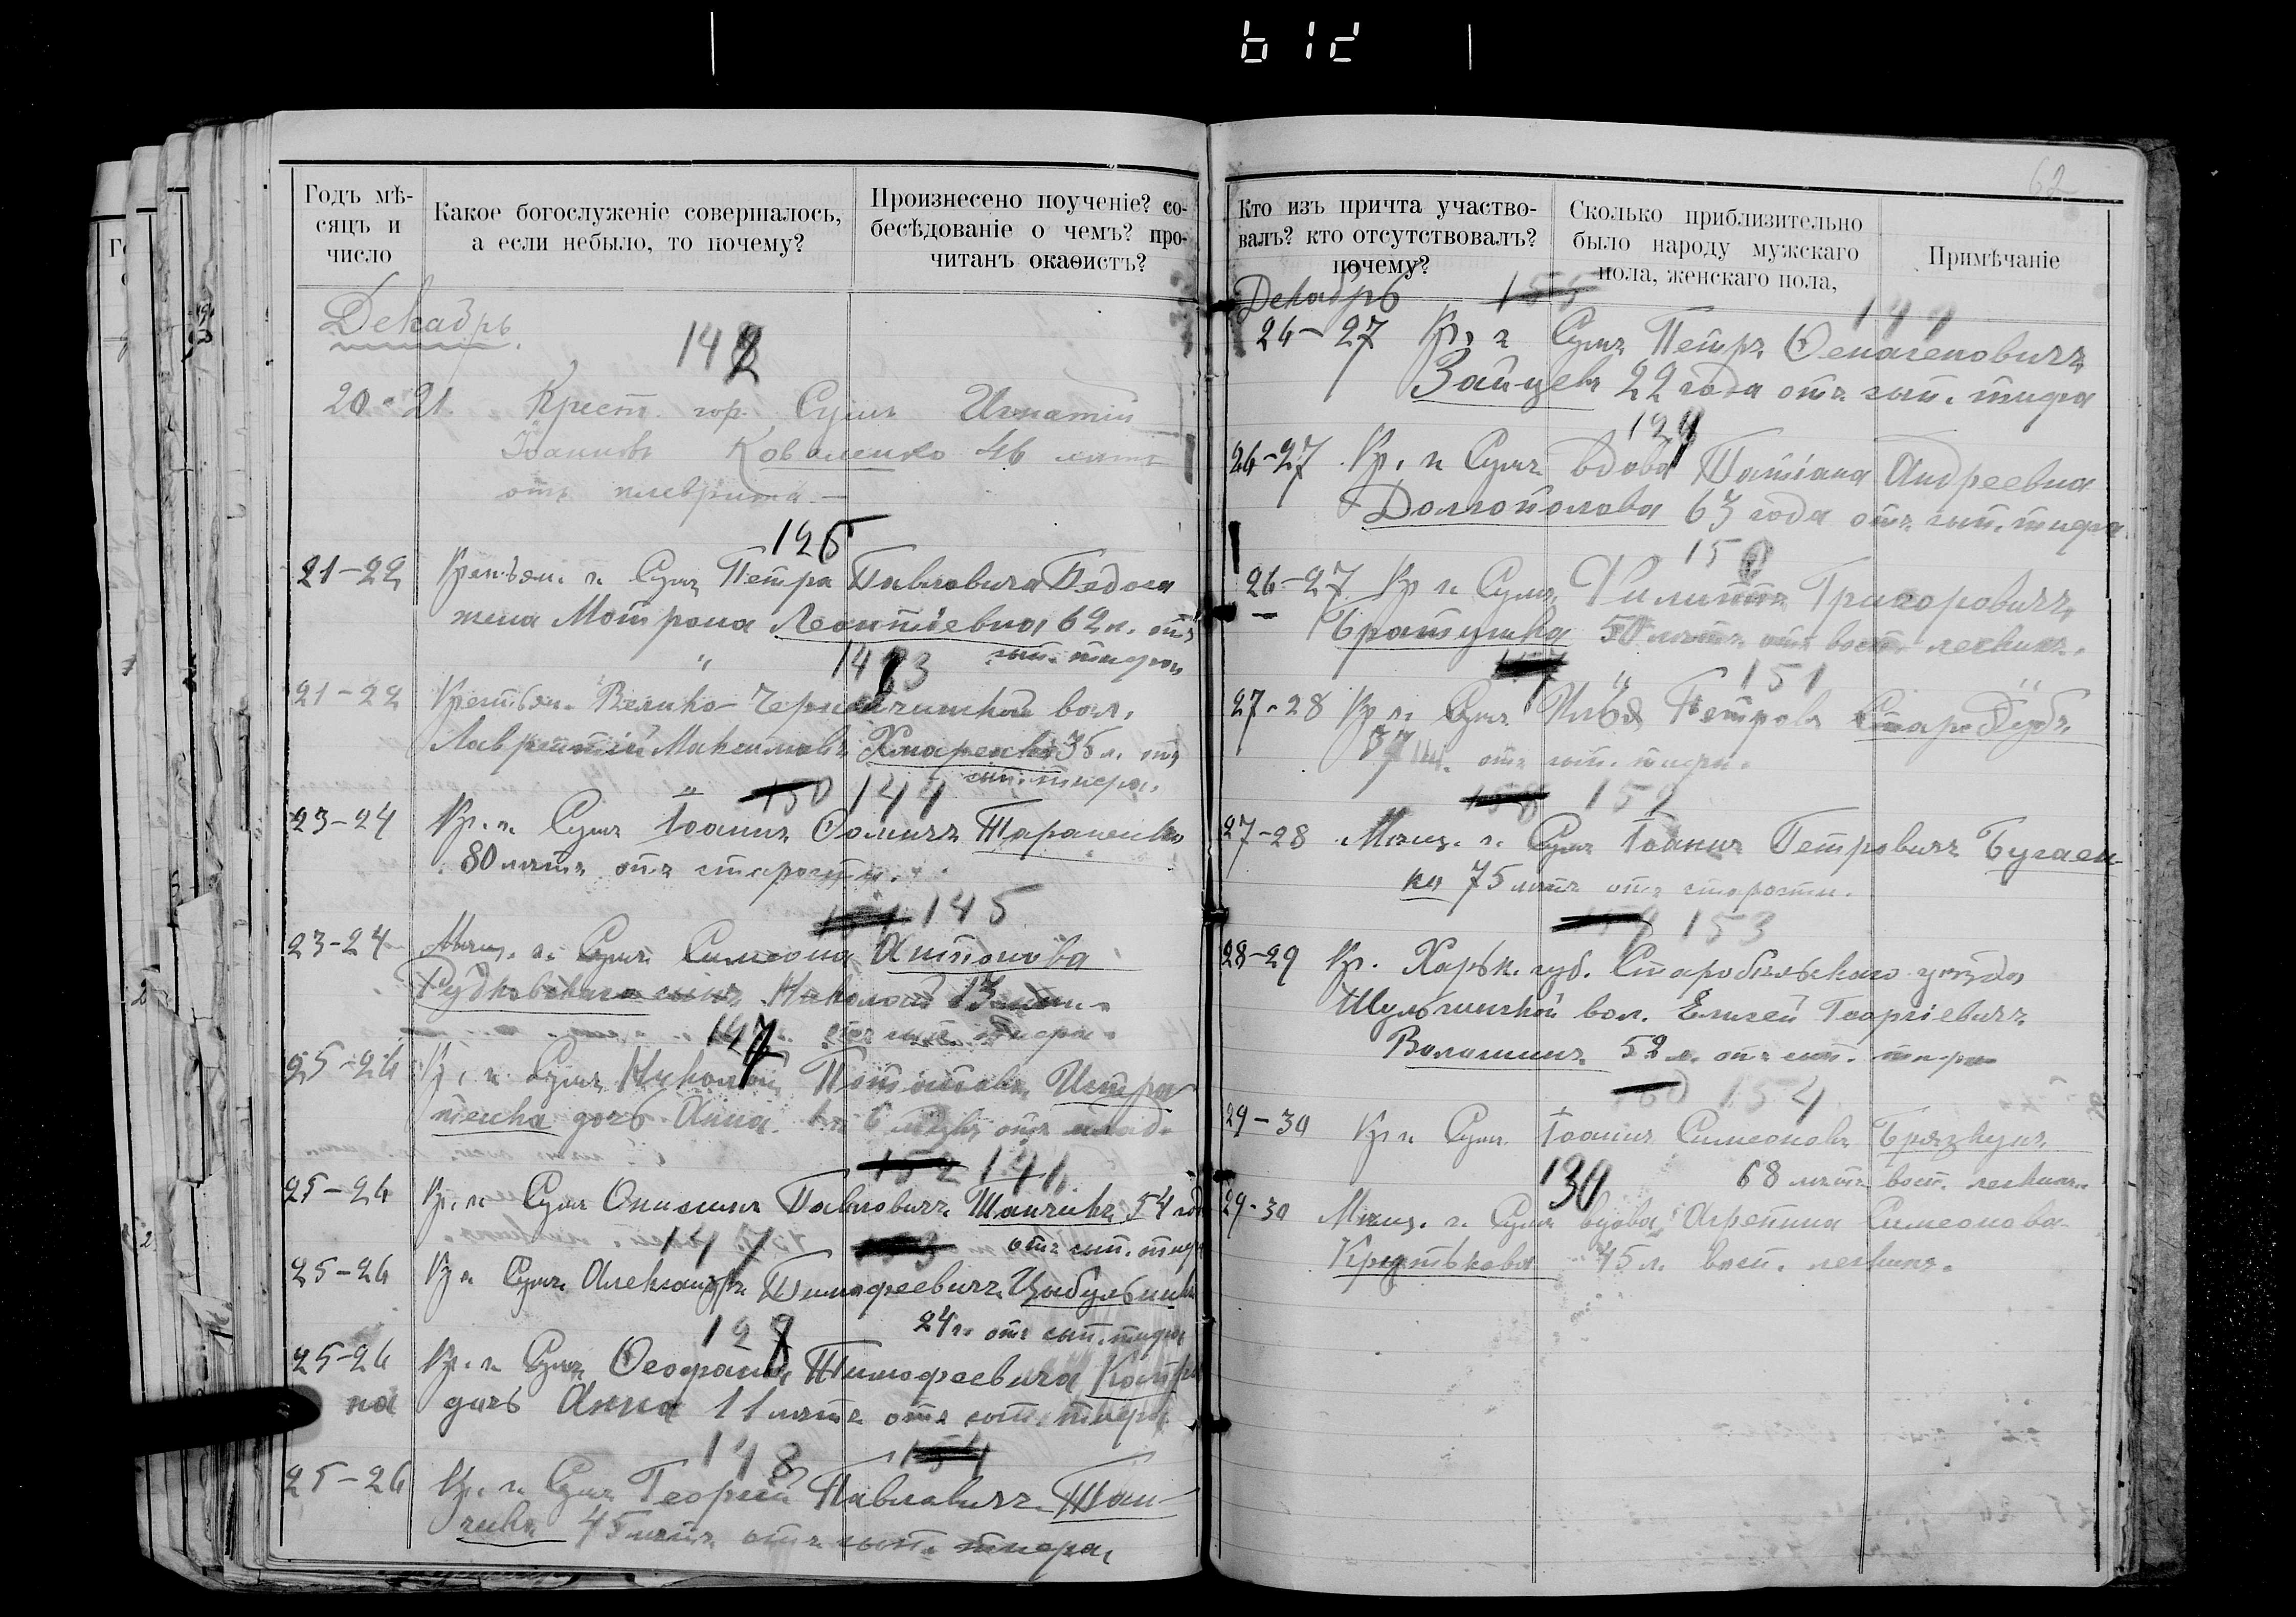 62
Годъ мѣ-
сяцъ и
число
Какое богослуженіе совершалось,
а если небыло, то почему?
Произнесено поученіе? со-
бесѣдованіе о чемъ? про-
читанъ окаѳистъ?
Декабрь.
142
20-21. Крест. гор. Сумъ Игнатій
Іоанновъ Коваленко 46 лѣтъ
отъ плеврита
126
21-22 Крестьян. г. Сумъ Петра Павловича
жена Мотрона Леонтіевна 62 л. отъ
сып. тифа
143
21-22 Крестьян. Велико-Чернетчинской вол.
Лаврентій Максимовъ 35 л. отъ
сып. тифа.
150 144
23-24 Кр. г. Сумъ Іоаннъ Ѳомичъ Тараненко
80 лѣтъ отъ старости.
145
23-24 Мѣщ. г. Сумъ Симеона Антонова
Рудковскаго сынъ Николай 13
отъ сып. тифа.
127
25-26 Кр. г. Сумъ
дочь Анна 6
152 146
25-26 Кр. г. Сумъ Онисимъ Павловичъ Танчикъ 54
отъ сып. тифа
147 153
25-26 Кр г. Сумъ Александръ Тимофеевичъ
24 г. отъ сып. тифа
128
25-26 Кр. г. Сумъ Тимофеевича
на дочь Анна 11 лѣтъ отъ сып. тифа
148 154
25-26 Кр. г. Сумъ Георгій Павловичъ Тан-
чикъ 45 лѣтъ отъ сып. тифа
Кто изъ причта участво-
валъ? кто отсутствовалъ?
почему?
Сколько приблизительно
было народу мужскаго
пола, женскаго пола,
Примѣчаніе
Декабрь 155 149
26-27 Кр. г. Сумъ Петръ
Зайцевъ 22 года отъ сып. тифа
129
26-27 Кр. г. Сумъ вдова Татіана Андреевна
Долгополова 63 года отъ сып. тифа
150
26-27 Кр г. Сумъ Филиппъ Григоровичъ
Братушка 50 лѣтъ отъ восп. легкихъ.
151
27-28 Кр. г. Сумъ Илья Петровъ Стародубъ
37 отъ сып. тифа.
158 152
27-28 Мѣщ. г. Сумъ Іоаннъ Петровичъ Бугаен-
ко 75 лѣтъ отъ старости.
159 153
28-29 Кр. Харьк. губ. Старобѣльскаго уѣзда
Шульгинской вол. Елисей Георгіевичъ
Волошинъ 52 л. отъ сып. тифа
160 154
29-30 Кр г. Сумъ Іоаннъ Симеоновъ Брязкунъ
68 лѣтъ восп. легкихъ.
130
29-30 Мѣщ. г. Сумъ вдова Агрепина Симеонова
Крутькова 45 л. восп. легкихъ.